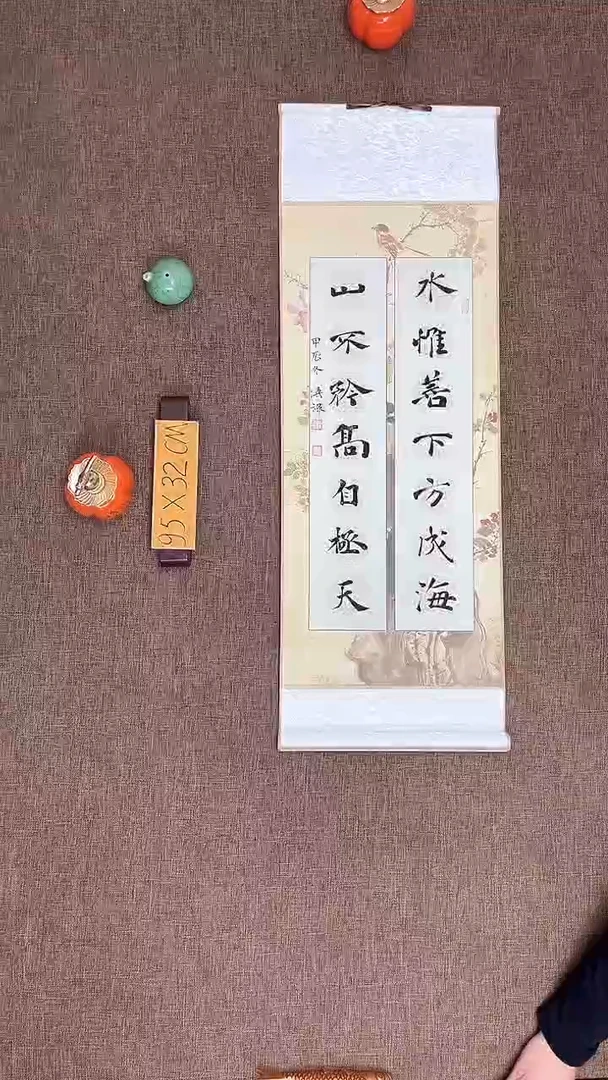 水惟善下方成海
山不矜高自极天
甲辰冬
95 X 32 CM